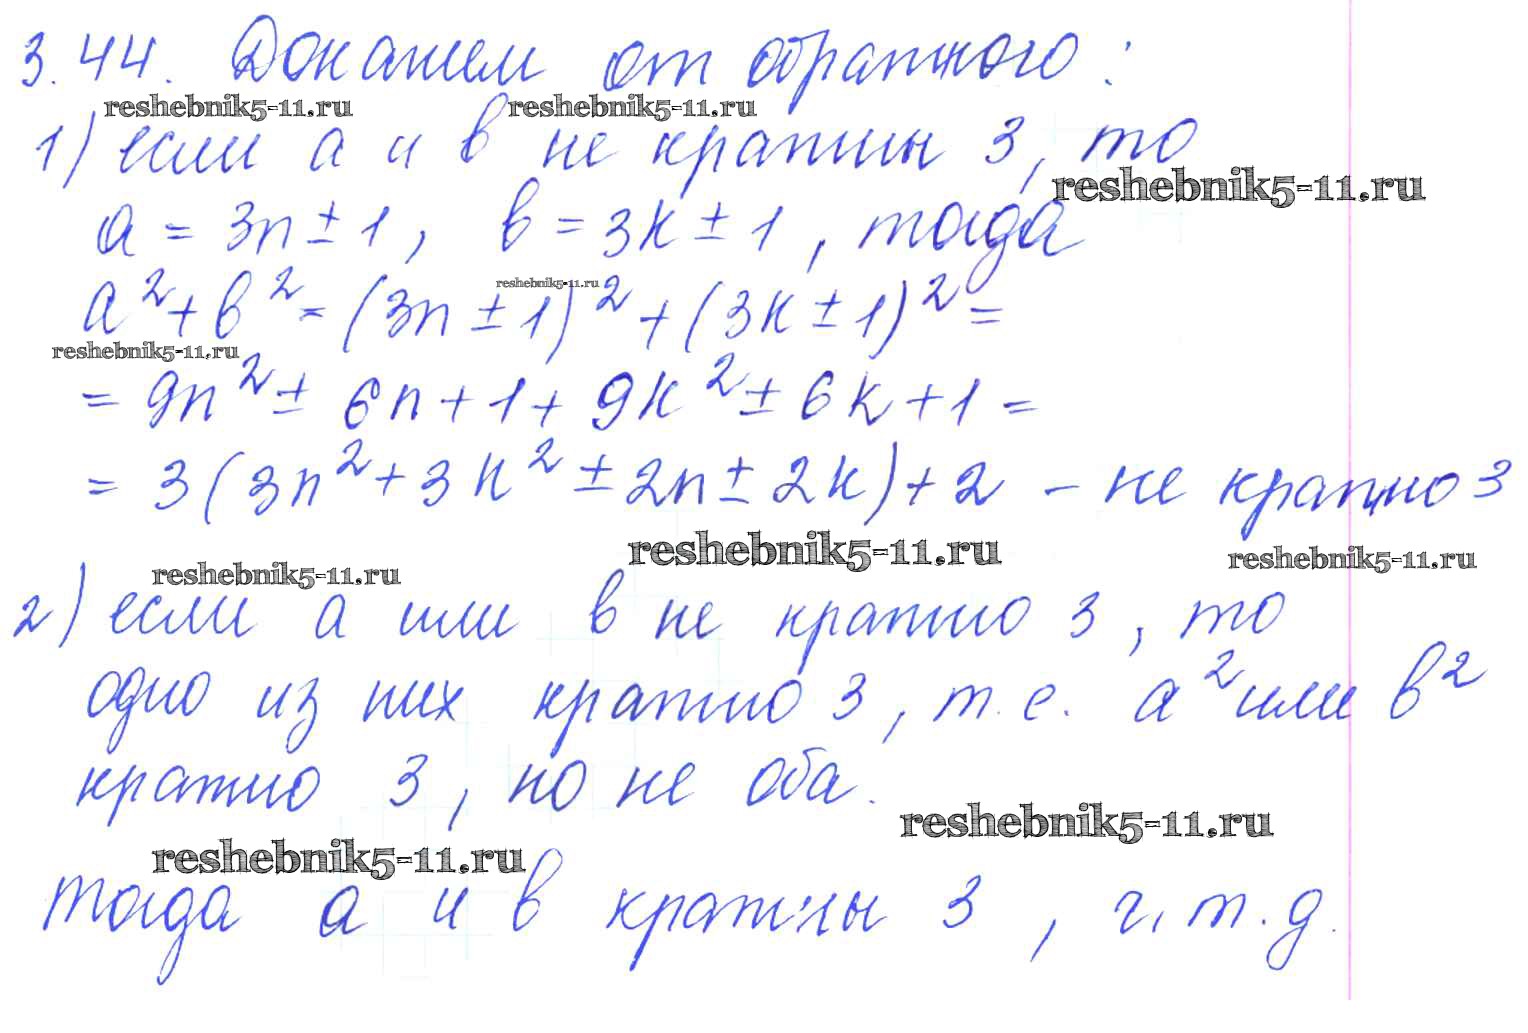 3.44. Докажем от обратного:
reshebnik5-11.ru reshebnik5-11.ru
1) если a и b не кратны 3, то
reshebnik5-11.ru
a = 3n ± 1, b = 3k ± 1, тогда
reshebnik5-11.ru
a² + b² = (3n ± 1)² + (3k ± 1)² =
reshebnik5-11.ru
= 9n² ± 6n + 1 + 9k² ± 6k + 1 =
= 3(3n² + 3k² ± 2n ± 2k) + 2 - не кратно 3
reshebnik5-11.ru reshebnik5-11.ru
reshebnik5-11.ru
2) если a или b не кратно 3, то
одно из них кратно 3, т.е. a² или b²
кратно 3, но не оба.
reshebnik5-11.ru
reshebnik5-11.ru
тогда a и b кратны 3, ч.т.д.